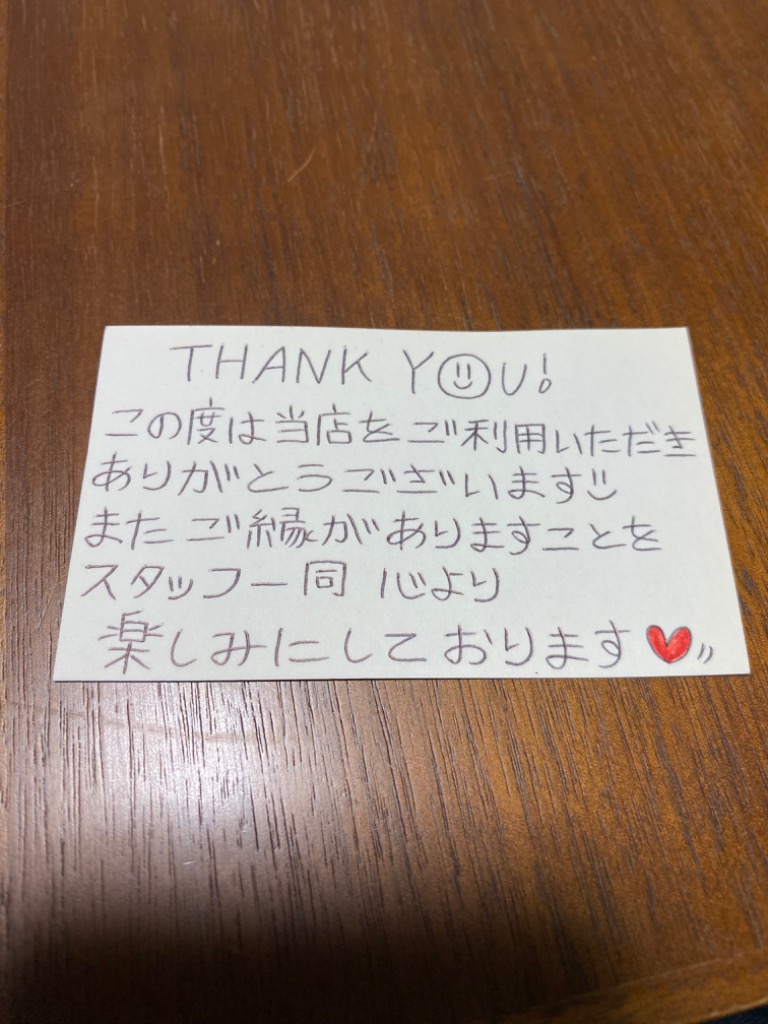 THANK YOU!
この度は当店をご利用いただき
ありがとうございます
またご縁がありますことを
スタッフ一同 心より
楽しみにしております